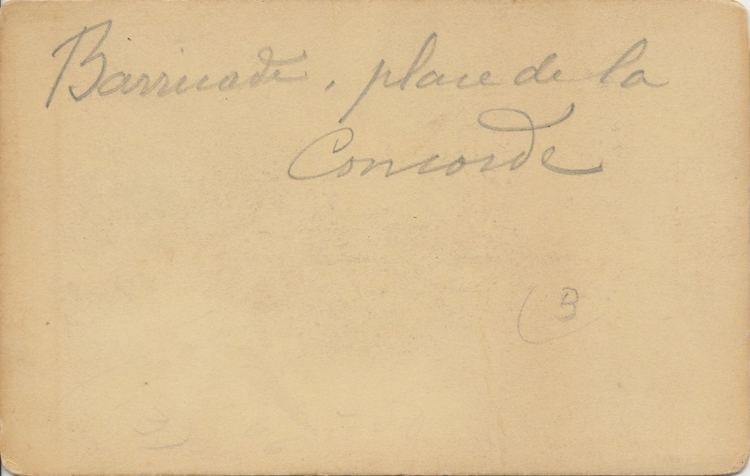 Barricade, place de la
Concorde
B